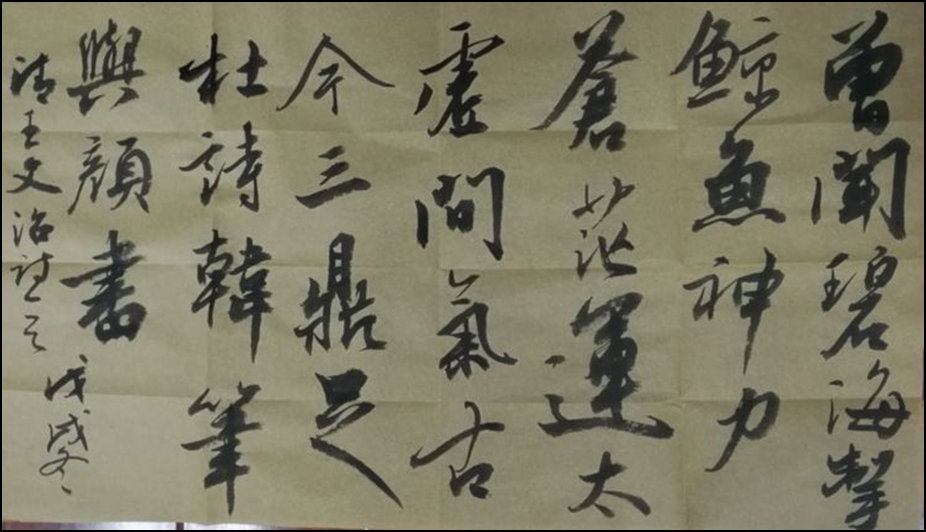 曾聞碧海掣
鯨魚神力
蒼茫運太
虛間氣古
今三鼎足
杜詩韓筆
與顏書
清王文治詩云 戊戌冬